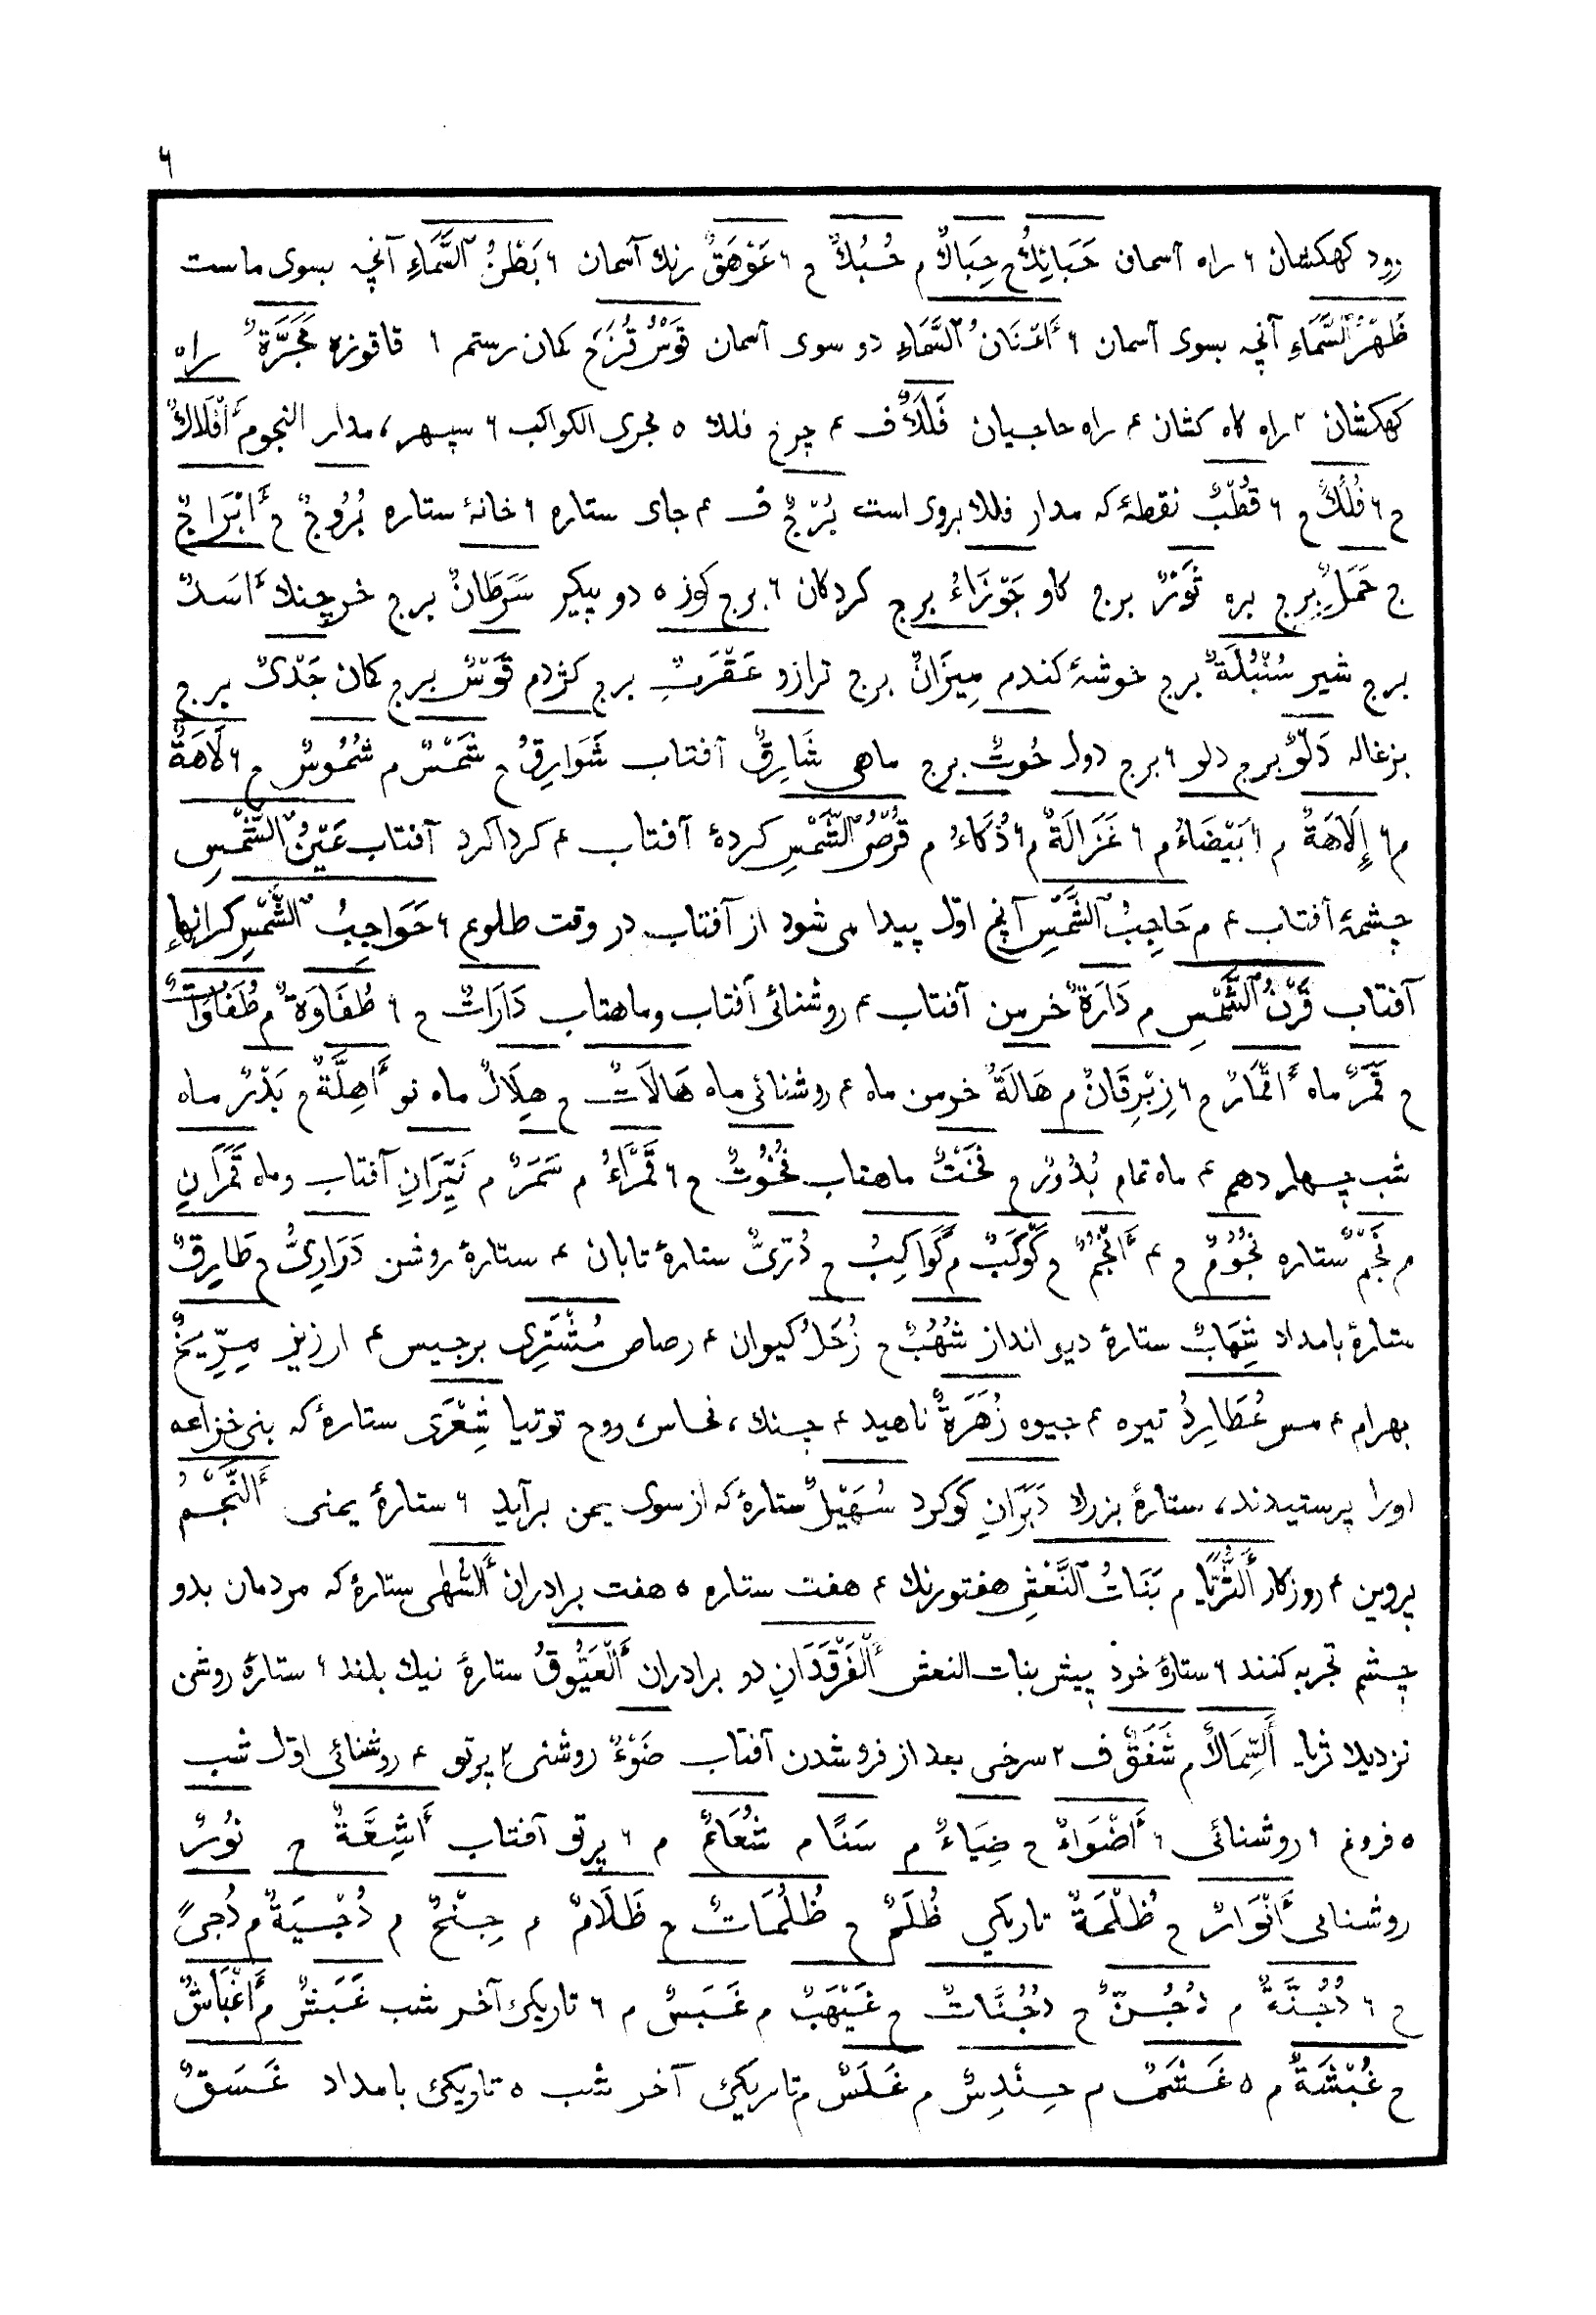 ٦
رود کهکشان ٦ راه آسمان حَبَائِكُ ح حِبَاكٌ م حُبُكٌ ح ٦ عَوْهَقٌ رنك آسمان ٦ بَطْنُ ٱلسَّمَاءِ آنچه بسوى ماست
ظَهْرُ ٱلسَّمَاءِ آنچه بسوى آسمان ٦ أَعْنَانُ ٱلسَّمَاءِ دو سوى آسمان قَوْسُ قُزَحَ کمان رستم ٦ قاقوزه مَجَرَّةٌ راه
کهکشان ٢ راه کاه کشان ۴ راه حاجيان فَلَكٌ ف ۴ چرخ فلك ٥ مجرى الکواکب ٦ سپهر، مدار النجوم أَفْلَاكٌ
ح ٦ فُلُكٌ ح ٦ قُطْبٌ نقطهٔ که مدار فلك بروى است بُرْجٌ ف ۴ جاى ستاره ٦ خانهٔ ستاره بُرُوجٌ ح أَبْرَاجٌ
ج حَمَلٌ برج بره ثَوْرٌ برج کاو جَوْزَاءُ برج کردکان ٦ برج کوز ٥ دو پيکر سَرَطَانٌ برج خرچنك أَسَدٌ
برج شير سُنْبُلَةٌ برج خوشهٔ کندم مِيزَانٌ برج ترازو عَقْرَبٌ برج کژدم قَوْسٌ برج کمان جَدْىٌ برج
بزغاله دَلْوٌ برج دلو ٦ برج دول حُوتٌ برج ماهى شَارِقٌ آفتاب شَوَارِقُ ح شَمْسٌ م شُمُوسٌ ح ٦ لَاهَةٌ
م ٦ إِلَاهَةٌ م ٦ بَيْضَاءُ م ٦ غَزَالَةٌ م ٦ ذُكَاءُ م قُرْصُ ٱلشَّمْسِ کردهٔ آفتاب ۴ کرداکرد آفتاب عَيْنُ ٱلشَّمْسِ
چشمهٔ آفتاب ۴ م حَاجِبُ ٱلشَّمْسِ آنچ اوّل پيدا مى شود از آفتاب در وقت طلوع ٦ حَوَاجِبُ ٱلشَّمْسِ کرانهاءِ
آفتاب قَرْنُ ٱلشَّمْسِ م دَارَةٌ خرمن آفتاب ۴ روشنائى آفتاب وماهتاب دَارَاتٌ ح ٦ طُفَاوَةٌ م طُفَاوَاتٌ
ح قَمَرٌ ماه أَقْمَارٌ ح ٦ زِبْرِقَانٌ م هَالَةٌ خرمن ماه ۴ روشنائى ماه هَالَاتٌ ح هِلَالٌ ماه نو أَهِلَّةٌ ح بَدْرٌ ماه
شب چهاردهم ۴ ماه تمام بُدُورٌ ح فَخْتٌ ماهتاب فُخُوتٌ ح ٦ قَمْرَاءُ م سَمَرٌ م نَيِّرَانِ آفتاب وماه قَمَرَانِ
م نَجْمٌ ستاره نُجُومٌ ح ۴ أَنْجُمٌ ح كَوْكَبٌ م كَوَاكِبُ ح دُرِّىٌّ ستارهٔ تابان ۴ ستارهٔ روشن دَرَارِىُّ ح طَارِقٌ
ستارهٔ بامداد شِهَابٌ ستارهٔ ديو انداز شُهُبٌ ح زُحَلُ کيوان ۴ رصاص مُشْتَرِى برجيس ۴ ارزيز مِرِّيخٌ
بهرام ۴ مس عُطَارِدُ تيره ۴ جيوه زُهَرَةٌ ناهيد ۴ چنك، نحاس، روح توتيا شِعْرَى ستارهٔ که بنى خزاعه
اورا پرستيدند، ستارهٔ بزرك دَبَرَانِ کوکرد سُهَيْلٌ ستارهٔ که از سوى يمن برآيد ٦ ستارهٔ يمنى أَلنَّجْمُ
پروين ۴ روزکار أَلثُّرَيَّا م بَنَاتُ ٱلنَّعْشِ هفتورنك ۴ هفت ستاره ٥ هفت برادران أَلسُّهَى ستارهٔ که مردمان بدو
چشم تجربه کنند ٦ ستارهٔ خرد پيش بنات النعش أَلْفَرْقَدَانِ دو برادران أَلْعَيُّوقُ ستارهٔ نيك بلند ٦ ستارهٔ روشن
نزديك ثريا أَلسِّمَاكُ م شَفَقٌ ف ٢ سرخى بعد از فرو شدن آفتاب ضَوْءٌ روشنى ٢ پرتو ۴ روشنائى اوّل شب
٥ فروغ ٦ روشنائى ٦ أَضْوَاءٌ ح ضِيَاءٌ م سَنًا م شُعَاعٌ م ٦ پرتو آفتاب أَشِعَّةٌ ح نُورٌ
روشنايى أَنْوَارٌ ح ظُلْمَةٌ تاريكي ظُلَمٌ ح ظُلُمَاتٌ ح ظَلَامٌ م جِنْحٌ م دُجْيَةٌ م دُجىً
ح ٦ دُجُنَّةٌ م دُجُنٌّ ح دُجُنَّاتٌ ح غَيْهَبٌ م غَبَسٌ م ٦ تاريکئ آخر شب غَبَشٌ م أَغْبَاشٌ
ح غُبْشَةٌ م ٥ م حِنْدِسٌ م غَلَسٌ م تاريکئ آخر شب ٥ تاريکئ بامداد غَسَقٌ